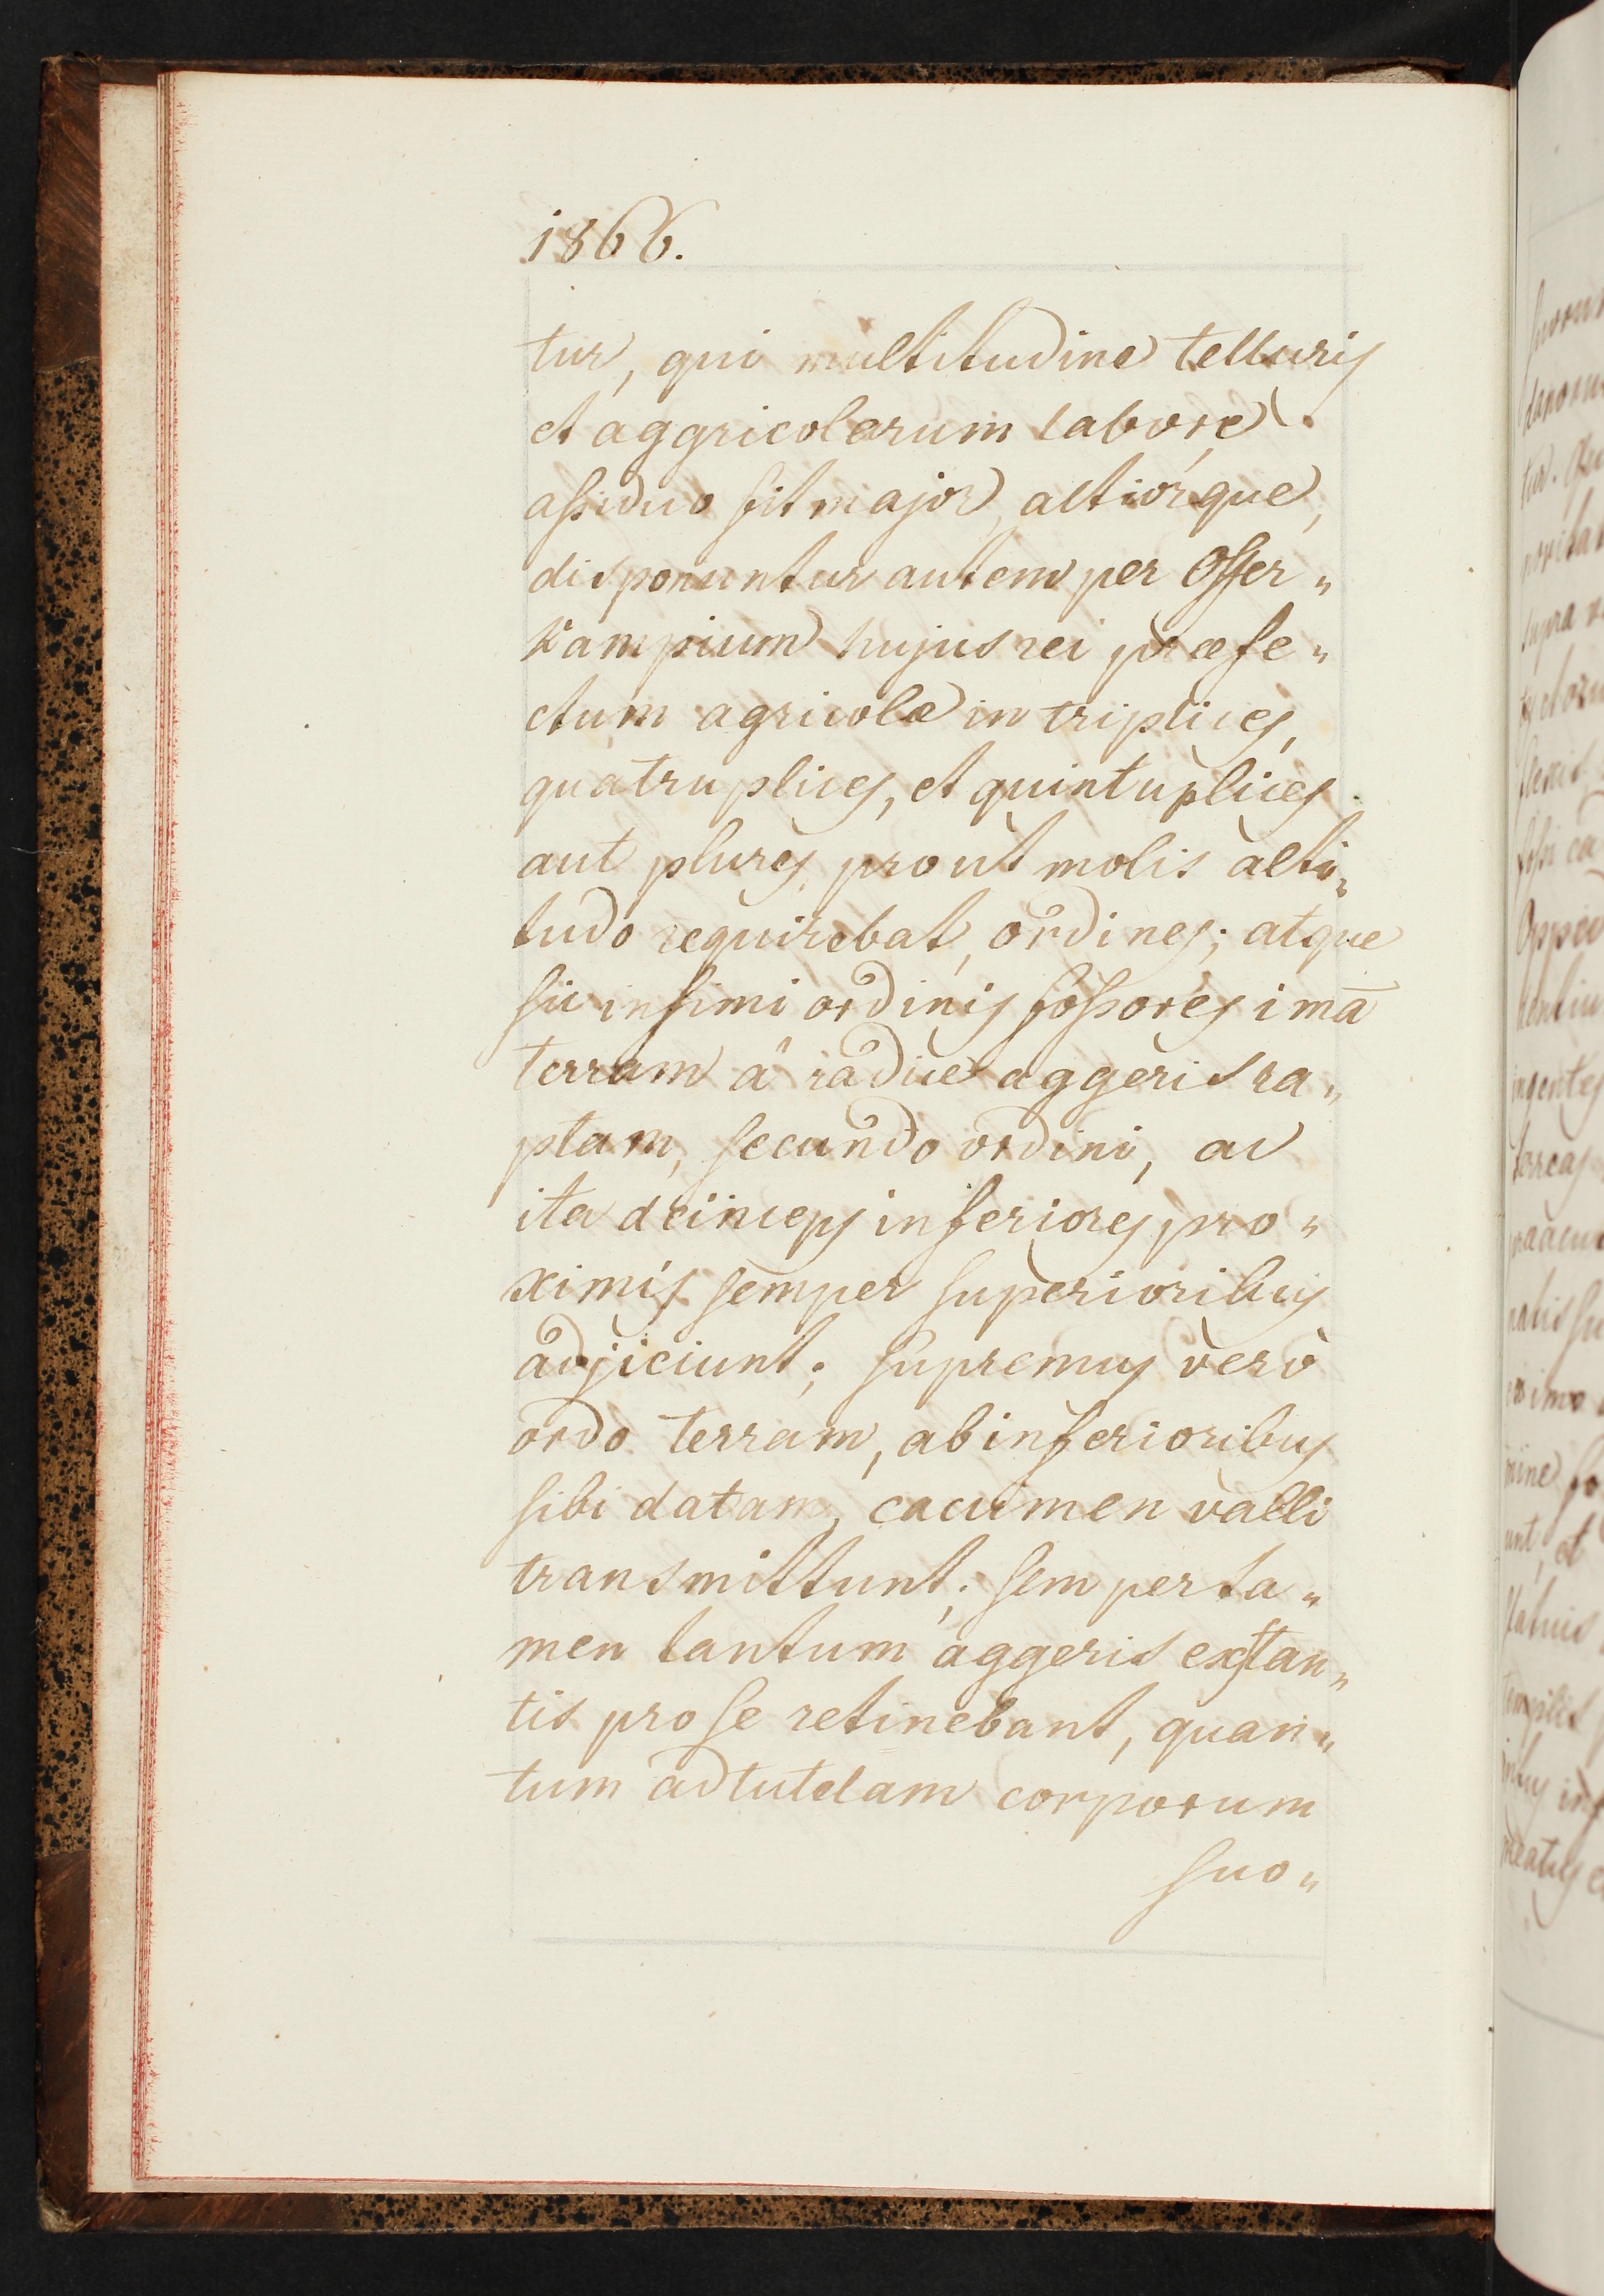 1866.
tur, qui multitudine telluris
et aggricolarum labore
assiduo fit major, altiorque,
disponuntur autem per Offer„
kampium hujus rei præfe„
ctum agricolæ in triplices,
quatruplices, et quintuplices
aut plures, proùt molis alti„
tudo requirebat, ordines; atque
sic infimi ordinis fossores imā
terram â radice aggeris ra„
ptam, secundo ordini, ac
ita deinceps inferiores pro„
ximis semper superioribus
adjiciunt; supremus verò
ordo terram, ab inferioribus
sibi datam, cacumen valli
transmittunt; semper ta„
men tantum aggeris exstan„
tis pro se retinebant, quan„
tum ad tutelam corporum
suo„